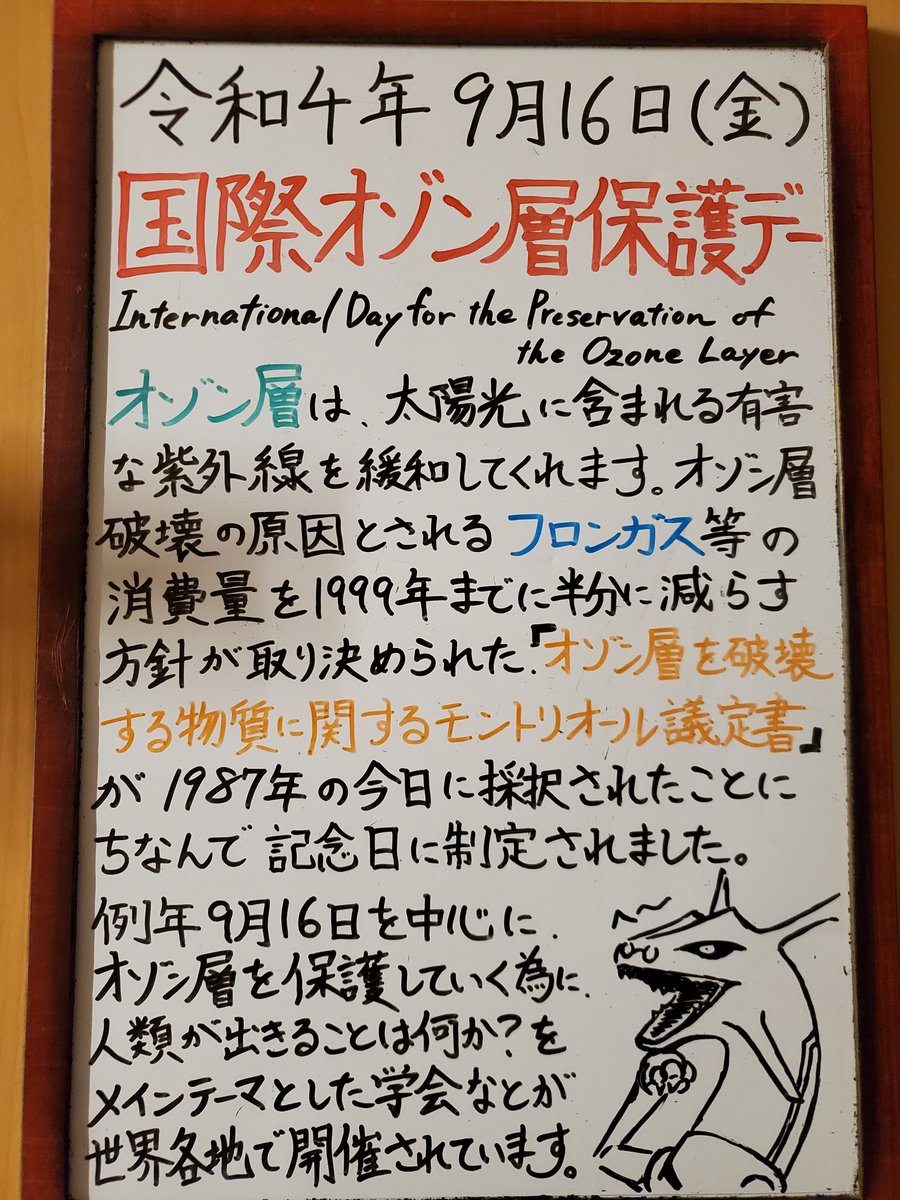 令和4年 9月16日(金)
国際オゾン層保護デー
International Day for the Preservation of
the Ozone Layer
オゾン層は、太陽光に含まれる有害
な紫外線を緩和してくれます。オゾン層
破壊の原因とされるフロンガス等の
消費量を1999年までに半分に減らす
方針が取り決められた、「オゾン層を破壊
する物質に関するモントリオール議定書」
が1987年の今日に採択されたことに
ちなんで記念日に制定されました。
例年9月16日を中心に、
オゾン層を保護していく為に、
人類が出きることは何か?を
メインテーマとした学会などが
世界各地で開催されています。